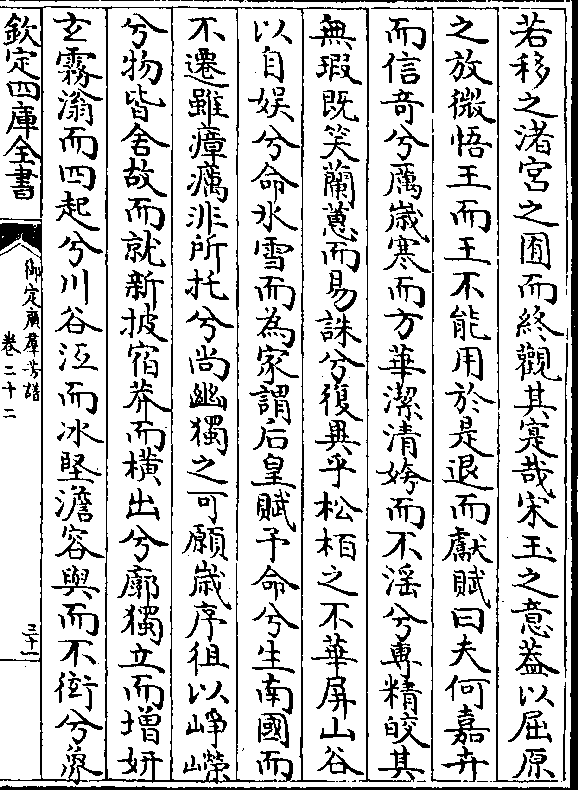 若移之渚宮之囿而終觀其寔哉宋玉之意葢以屈原
之放微悟王而王不能用於是退而獻賦曰夫何嘉卉
而信奇兮厲歳寒而方華潔清姱而不滛兮專精皎其
無瑕既笑蘭蕙而易誅兮復異乎松栢之不華屏山谷
以自娱兮命氷雪而為家謂后皇賦予命兮生南國而
不遷雖瘴癘非所托兮尚幽獨之可願歳序徂以崢嶸
兮物皆舍故而就新披宿莽而横出兮廓獨立而增妍
玄霧滃而四起兮川谷沍而冰堅澹容與而不衒兮象
欽定四庫全書
御定廣羣芳譜
卷二十二
三十一